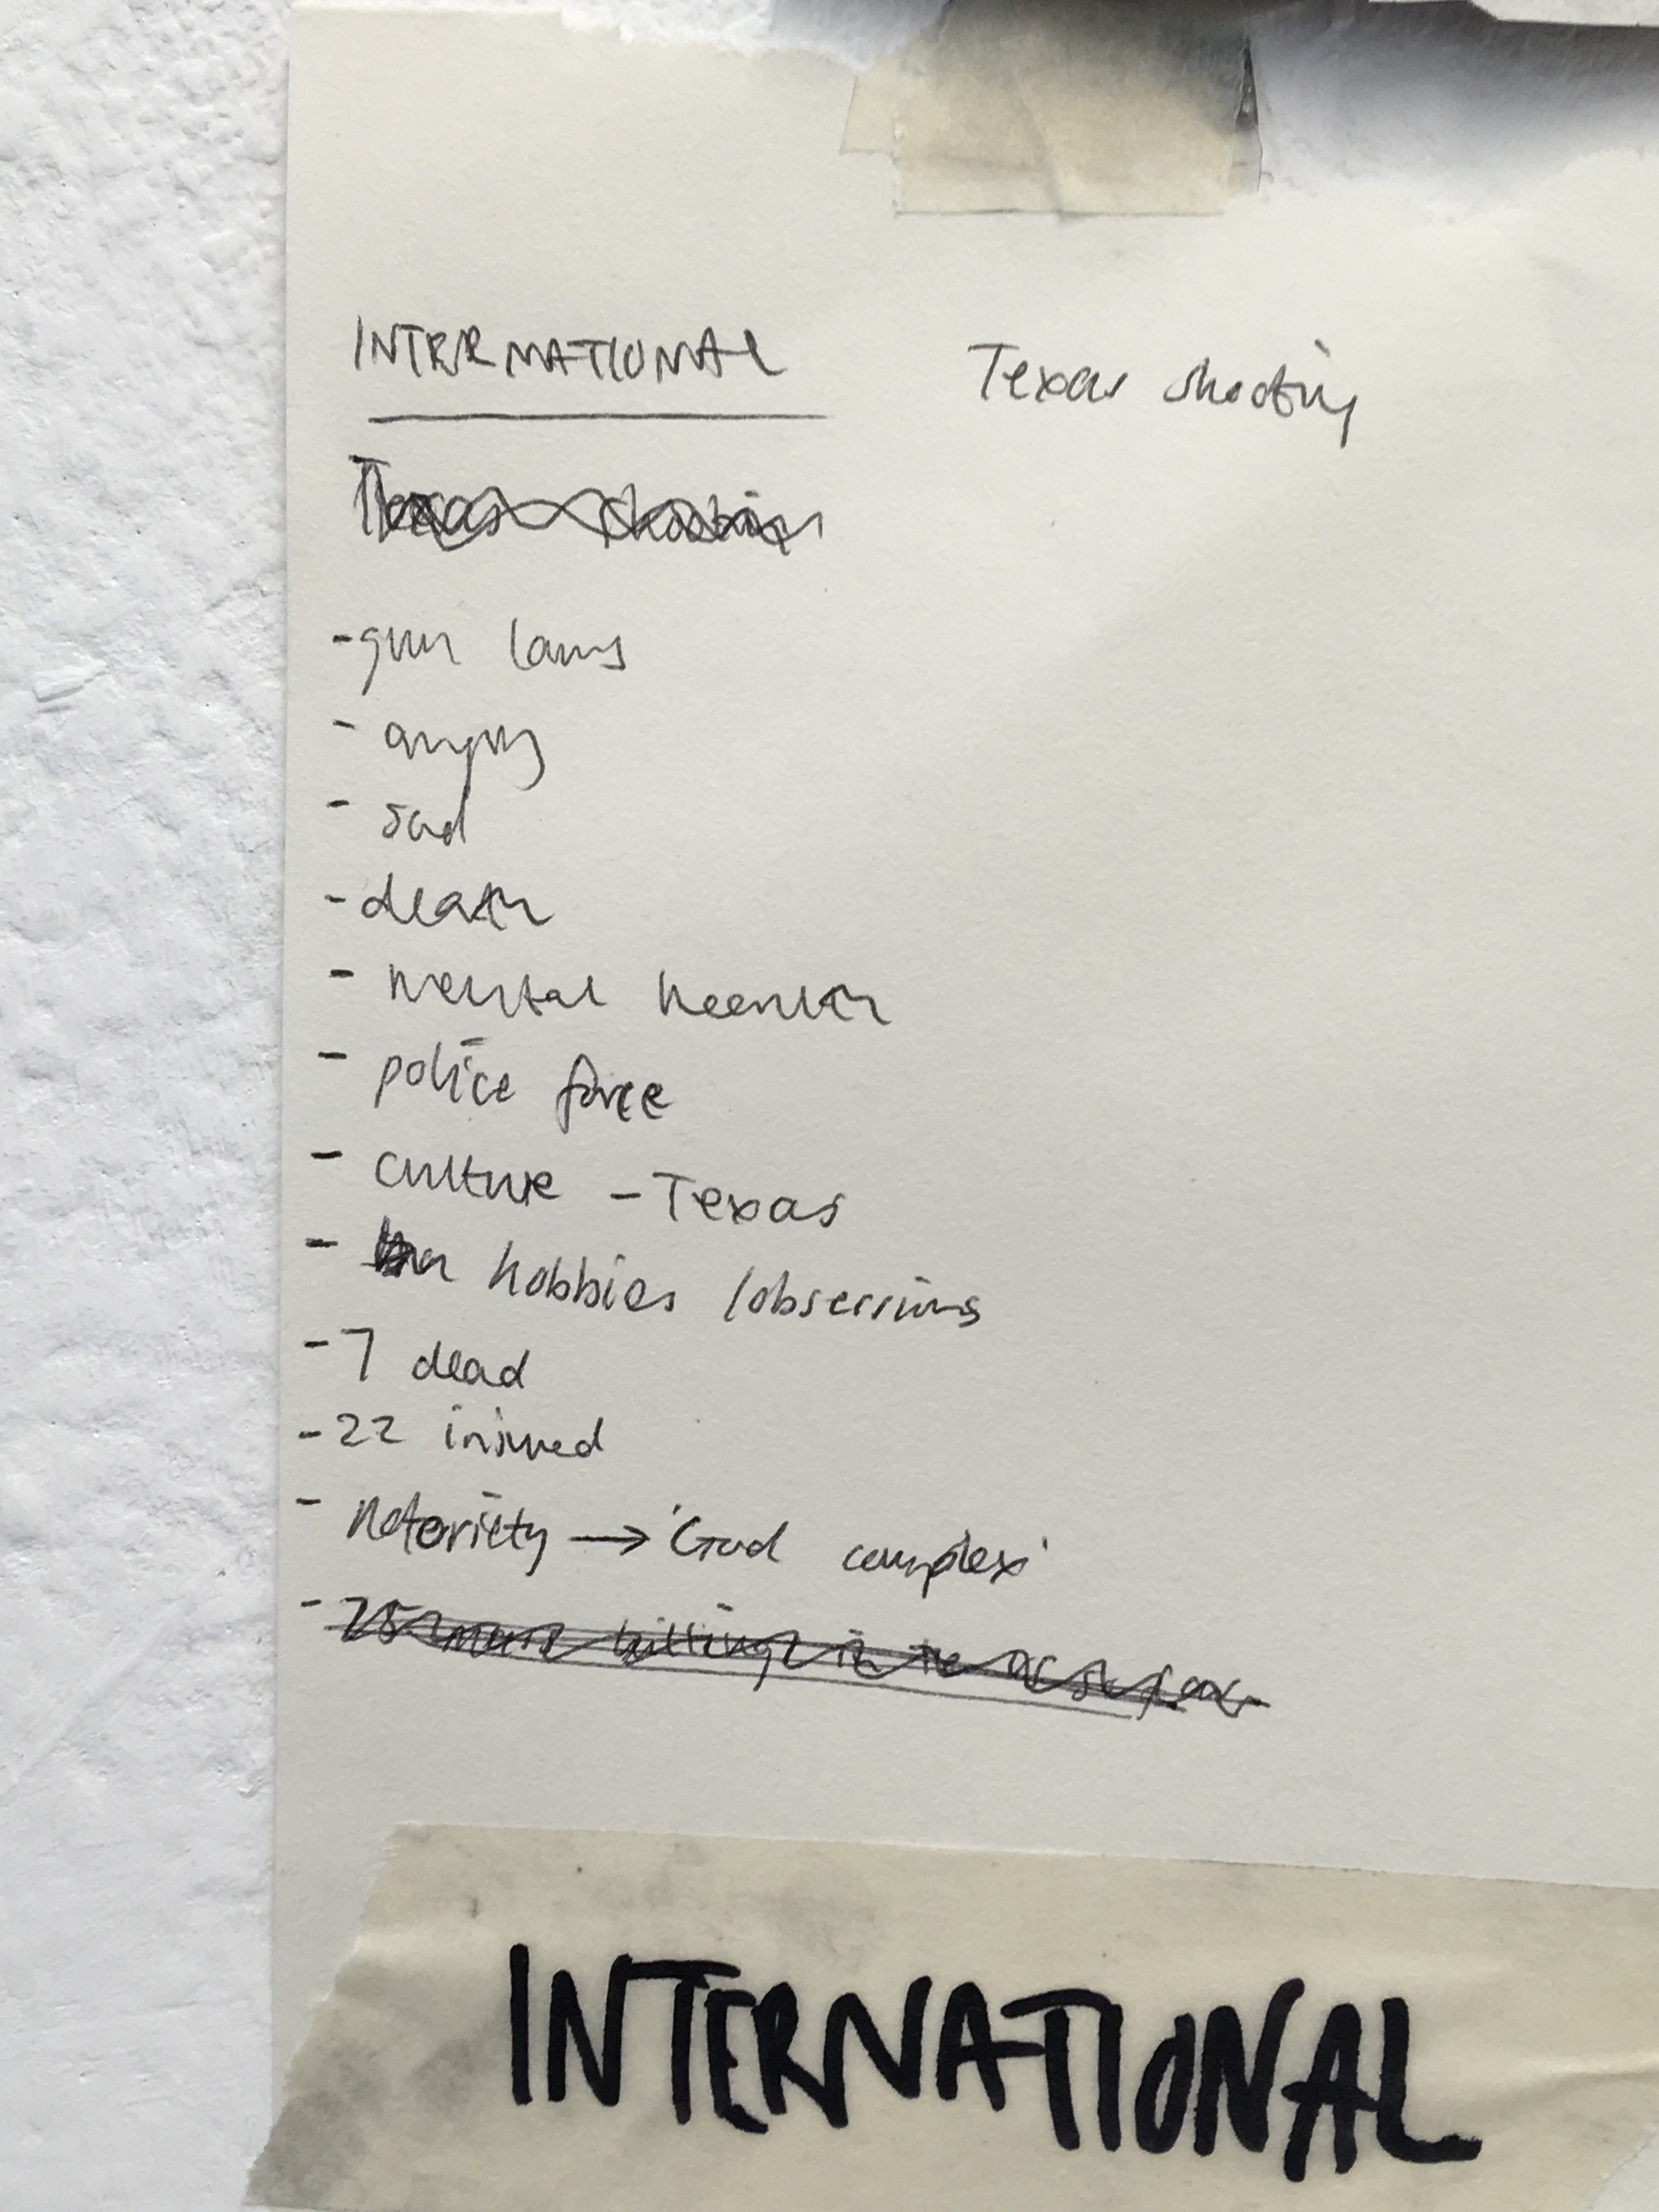 INTERNATIONAL
Texas shooting
Texas shooting
- gun laws
- angry
- sad
- death
- mental health
- police force
- culture - Texas
- hobbies / obsessions
- 7 dead
- 22 injured
- Notoriety → 'God complex'
- 25 mass killings in the US
INTERNATIONAL